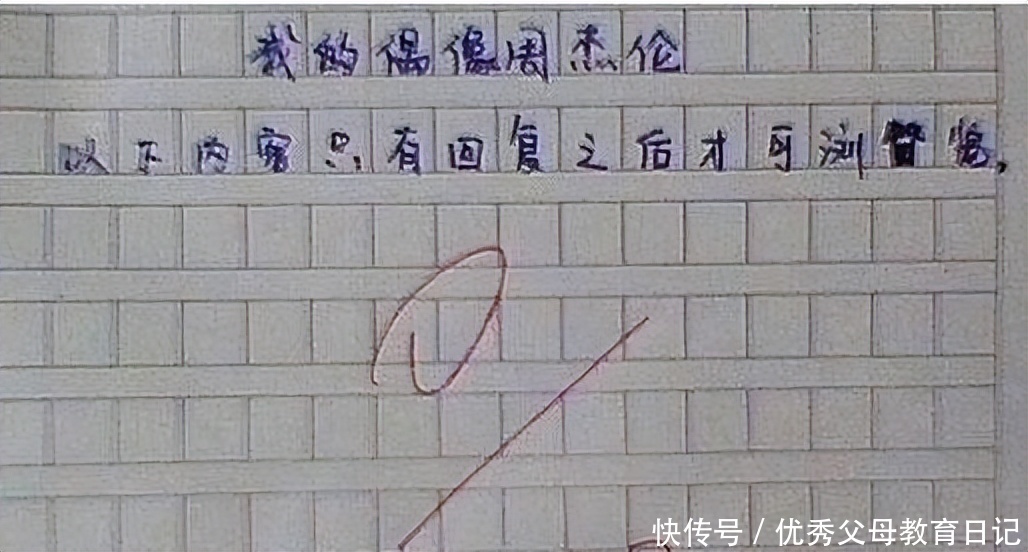 我的偶像周杰伦
以下内容只有回复之后才可浏览,
0
快传号 / 优秀父母教育日记